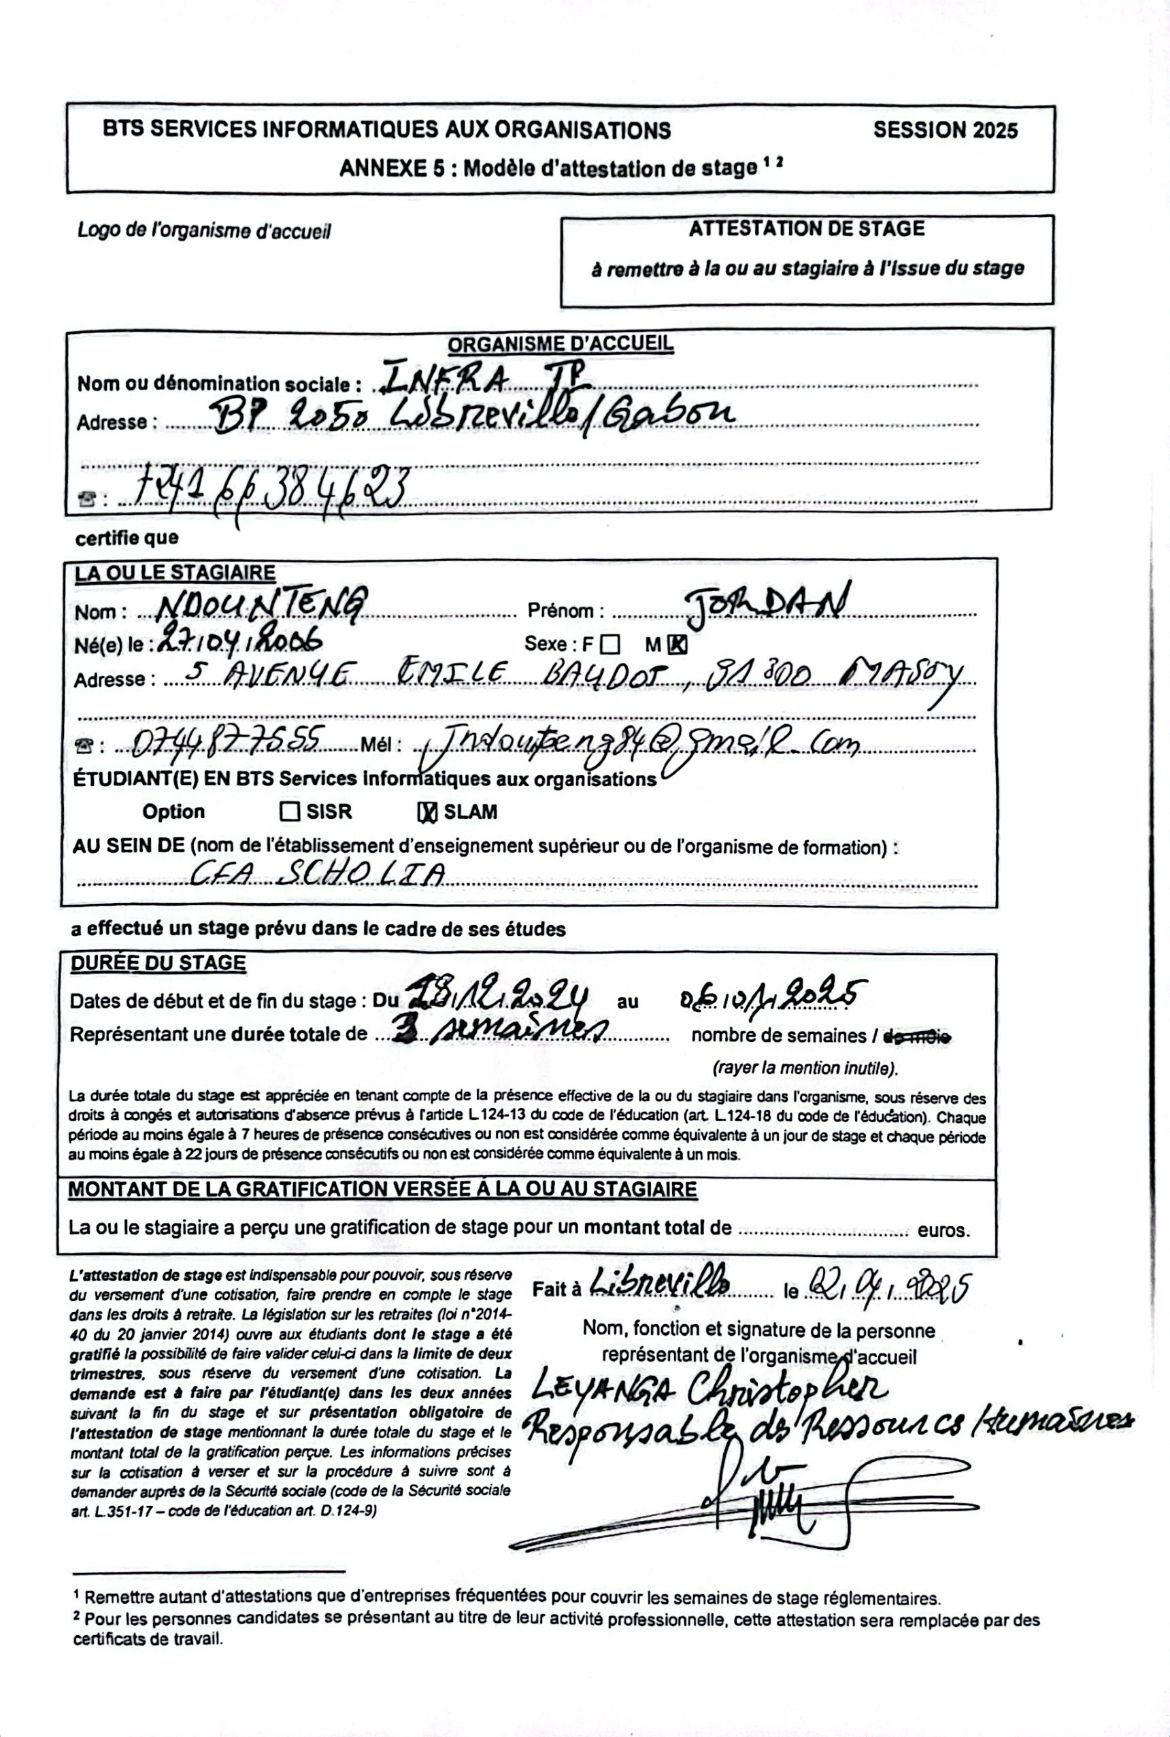 BTS SERVICES INFORMATIQUES AUX ORGANISATIONS SESSION 2025
ANNEXE 5 : Modèle d'attestation de stage ¹ ²
Logo de l'organisme d'accueil
ATTESTATION DE STAGE
à remettre à la ou au stagiaire à l'issue du stage
ORGANISME D'ACCUEIL
Nom ou dénomination sociale : INFRA TP
Adresse : BP 2050 Libreville/Gabon
☎ : +241 66384623
certifie que
LA OU LE STAGIAIRE
Nom : NDOUNTENG Prénom : JORDAN
Né(e) le : 27/04/2006 Sexe : F ☐ M ☒
Adresse : 5 AVENUE EMILE BAUDOT, 91300 MASSY
☎ : 0744877555 Mél : jndounteng84@gmail.com
ÉTUDIANT(E) EN BTS Services informatiques aux organisations
Option ☐ SISR ☒ SLAM
AU SEIN DE (nom de l'établissement d'enseignement supérieur ou de l'organisme de formation) :
CFA SCHOLIA
a effectué un stage prévu dans le cadre de ses études
DURÉE DU STAGE
Dates de début et de fin du stage : Du 12.2024 au 2025
Représentant une durée totale de 3 semaines nombre de semaines / de mois
(rayer la mention inutile).
La durée totale du stage est appréciée en tenant compte de la présence effective de la ou du stagiaire dans l'organisme, sous réserve des
droits à congés et autorisations d'absence prévus à l'article L.124-13 du code de l'éducation (art. L.124-18 du code de l'éducation). Chaque
période au moins égale à 7 heures de présence consécutives ou non est considérée comme équivalente à un jour de stage et chaque période
au moins égale à 22 jours de présence consécutifs ou non est considérée comme équivalente à un mois.
MONTANT DE LA GRATIFICATION VERSÉE À LA OU AU STAGIAIRE
La ou le stagiaire a perçu une gratification de stage pour un montant total de .............................. euros.
L'attestation de stage est indispensable pour pouvoir, sous réserve
du versement d'une cotisation, faire prendre en compte le stage
dans les droits à retraite. La législation sur les retraites (loi n°2014-
40 du 20 janvier 2014) ouvre aux étudiants dont le stage a été
gratifié la possibilité de faire valider celui-ci dans la limite de deux
trimestres, sous réserve du versement d'une cotisation. La
demande est à faire par l'étudiant(e) dans les deux années
suivant la fin du stage et sur présentation obligatoire de
l'attestation de stage mentionnant la durée totale du stage et le
montant total de la gratification perçue. Les informations précises
sur la cotisation à verser et sur la procédure à suivre sont à
demander auprès de la Sécurité sociale (code de la Sécurité sociale
art. L.351-17 – code de l'éducation art. D.124-9)
Fait à Libreville le 02/04/2025
Nom, fonction et signature de la personne
représentant de l'organisme d'accueil
LEYANGA Christopher
Responsable des Ressources Humaines
¹ Remettre autant d'attestations que d'entreprises fréquentées pour couvrir les semaines de stage réglementaires.
² Pour les personnes candidates se présentant au titre de leur activité professionnelle, cette attestation sera remplacée par des
certificats de travail.